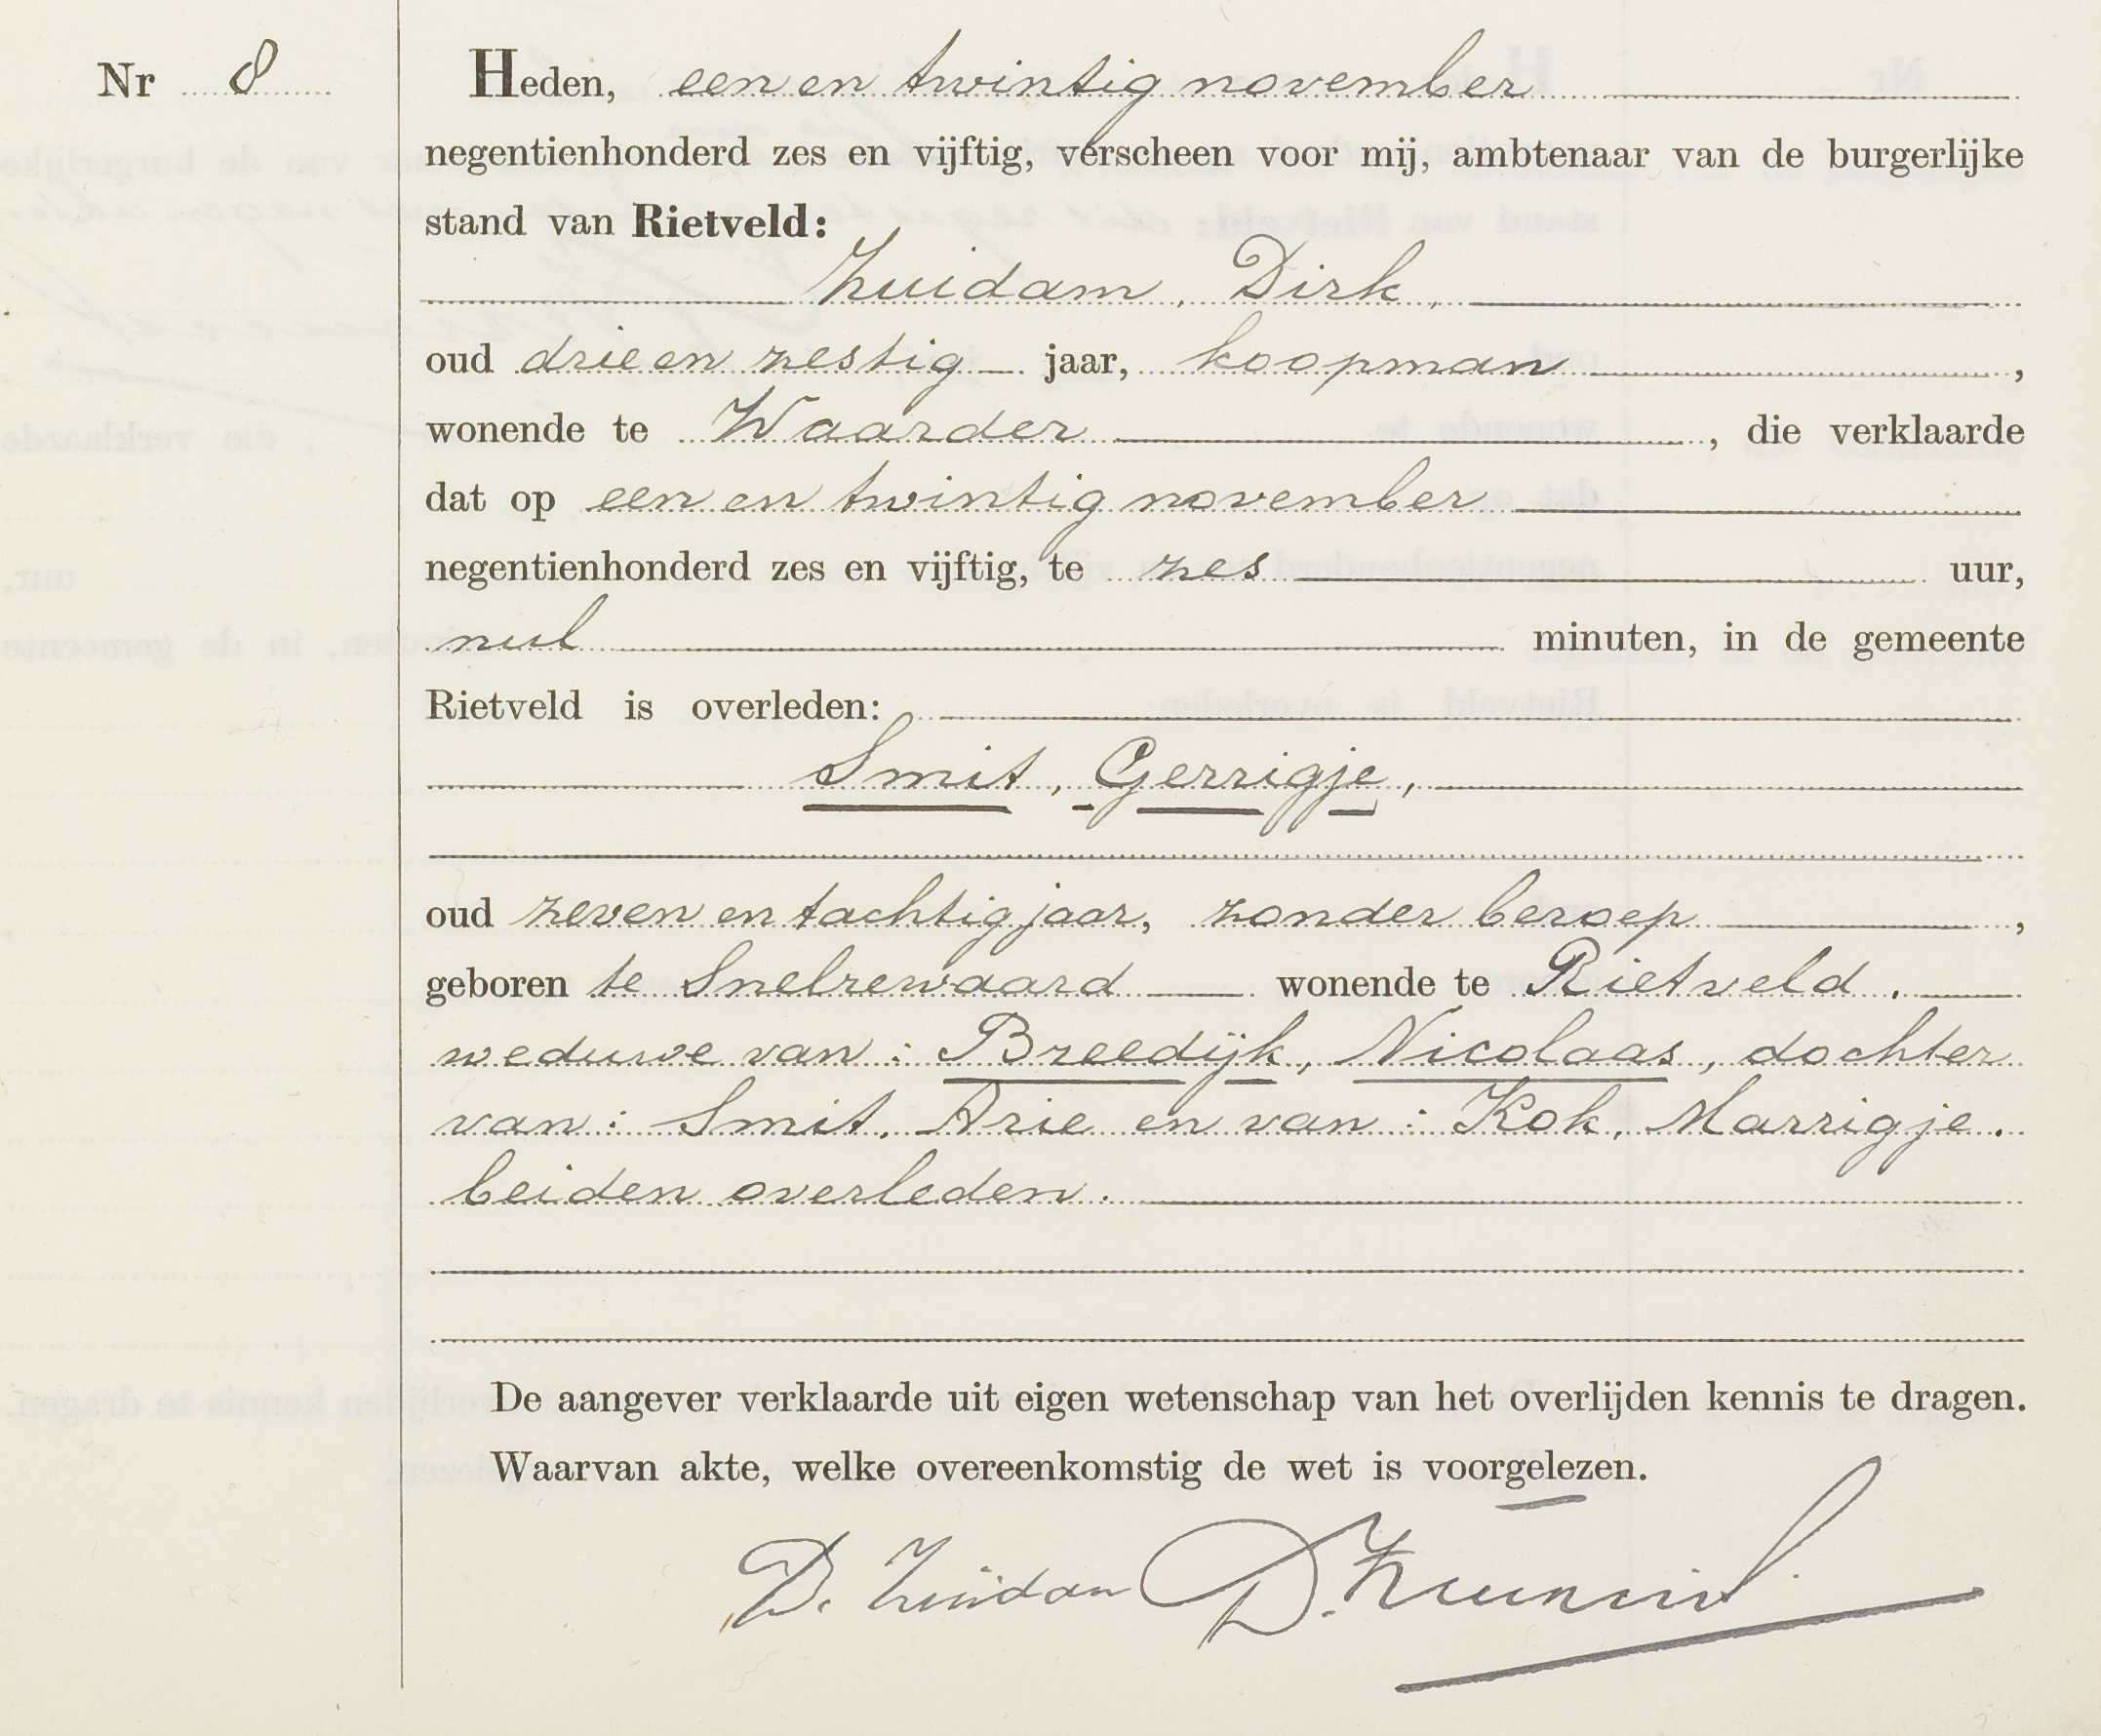 Nr 8
Heden, een en twintig november
negentienhonderd zes en vijftig, verscheen voor mij, ambtenaar van de burgerlijke
stand van Rietveld:
Zuidam, Dirk,
oud drie en zestig jaar, koopman,
wonende te Waarder, die verklaarde
dat op een en twintig november
negentienhonderd zes en vijftig, te zes uur,
nul minuten, in de gemeente
Rietveld is overleden:
Smit, Gerrigje,
oud zeven en tachtig jaar, zonder beroep,
geboren te Snelrewaard wonende te Rietveld.
weduwe van: Breedijk, Nicolaas, dochter
van: Smit, Arie en van: Kok, Marrigje.
beiden overleden.
De aangever verklaarde uit eigen wetenschap van het overlijden kennis te dragen.
Waarvan akte, welke overeenkomstig de wet is voorgelezen.
D. Zuidam D.